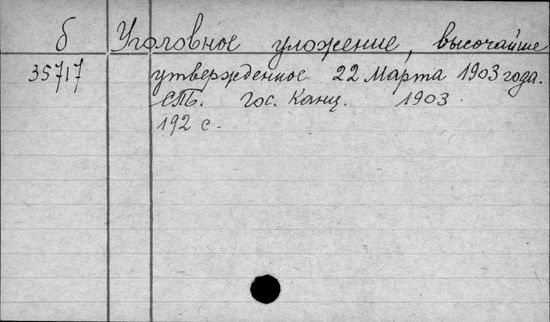 б Уголовное уложение, высочайше
35717 утвержденное 22 Марта 1903 года.
СПБ. Гос. Канц. 1903.
192 с.